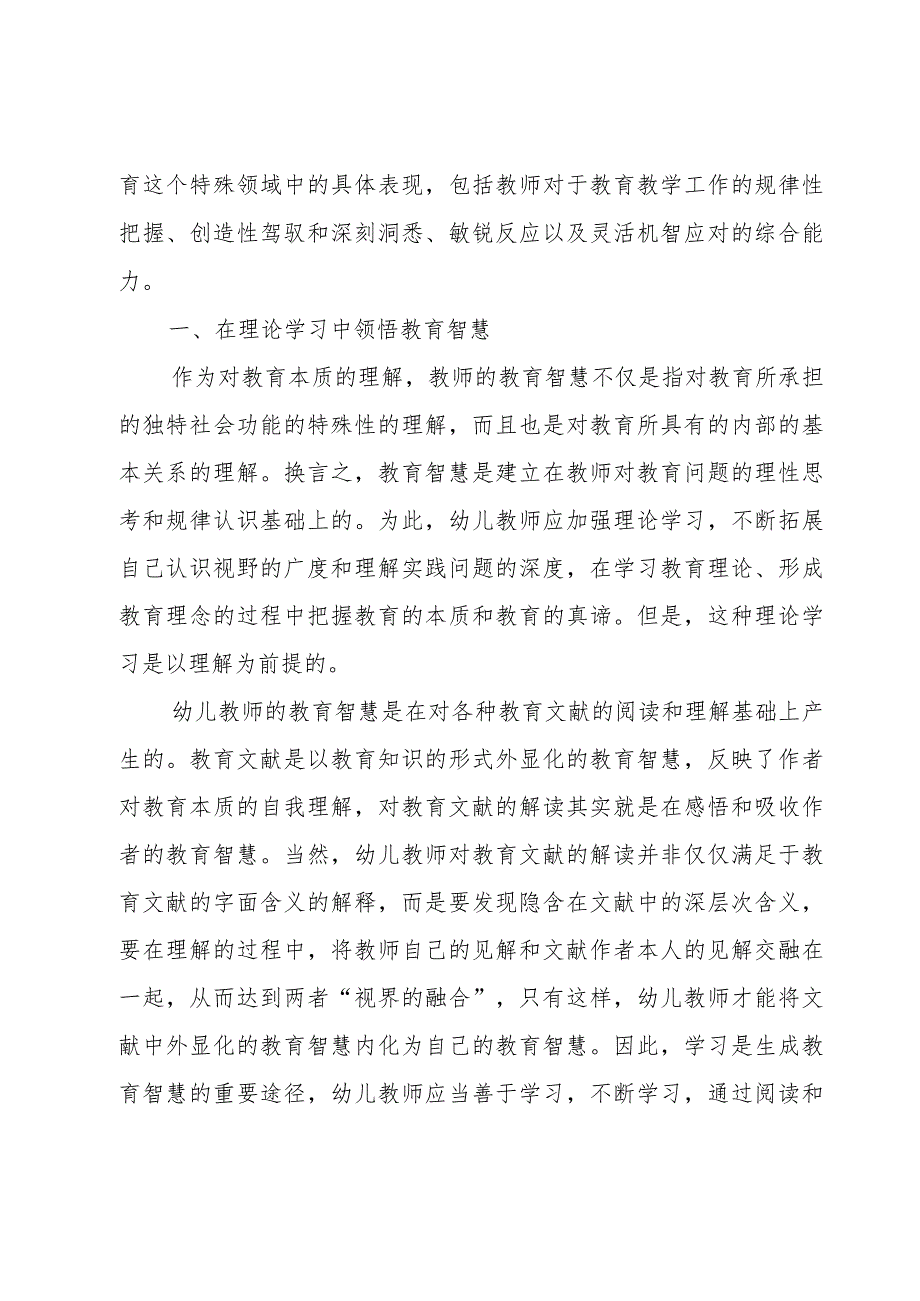 育这个特殊领域中的具体表现，包括教师对于教育教学工作的规律性
把握、创造性驾驭和深刻洞悉、敏锐反应以及灵活机智应对的综合能
力。
一、在理论学习中领悟教育智慧
作为对教育本质的理解，教师的教育智慧不仅是指对教育所承担
的独特社会功能的特殊性的理解，而且也是对教育所具有的内部的基
本关系的理解。换言之，教育智慧是建立在教师对教育问题的理性思
考和规律认识基础上的。为此，幼儿教师应加强理论学习，不断拓展
自己认识视野的广度和理解实践问题的深度，在学习教育理论、形成
教育理念的过程中把握教育的本质和教育的真谛。但是，这种理论学
习是以理解为前提的。
幼儿教师的教育智慧是在对各种教育文献的阅读和理解基础上产
生的。教育文献是以教育知识的形式外显化的教育智慧，反映了作者
对教育本质的自我理解，对教育文献的解读其实就是在感悟和吸收作
者的教育智慧。当然，幼儿教师对教育文献的解读并非仅仅满足于教
育文献的字面含义的解释，而是要发现隐含在文献中的深层次含义，
要在理解的过程中，将教师自己的见解和文献作者本人的见解交融在
一起，从而达到两者“视界的融合”，只有这样，幼儿教师才能将文
献中外显化的教育智慧内化为自己的教育智慧。因此，学习是生成教
育智慧的重要途径，幼儿教师应当善于学习，不断学习，通过阅读和